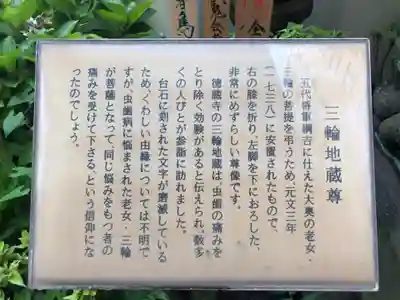 三輪地蔵尊
五代将軍綱吉に仕えた大奥の老女・
三輪の菩提を弔うため、元文三年
(一七三八)に安置されたもので、
右の膝を折り、左脚を下におろした、
非常にめずらしい尊像です。
徳蔵寺の三輪地蔵は、虫歯の痛みを
とり除く効験があると伝えられ、数多
くの人びとが参詣に訪れました。
台石に刻まれた文字が磨滅している
ため、くわしい由縁については不明で
すが、虫歯病に悩まされた老女・三輪
が菩薩となって、同じ悩みをもつ者の
痛みを受けて下さる、という信仰にな
ったのでしょう。